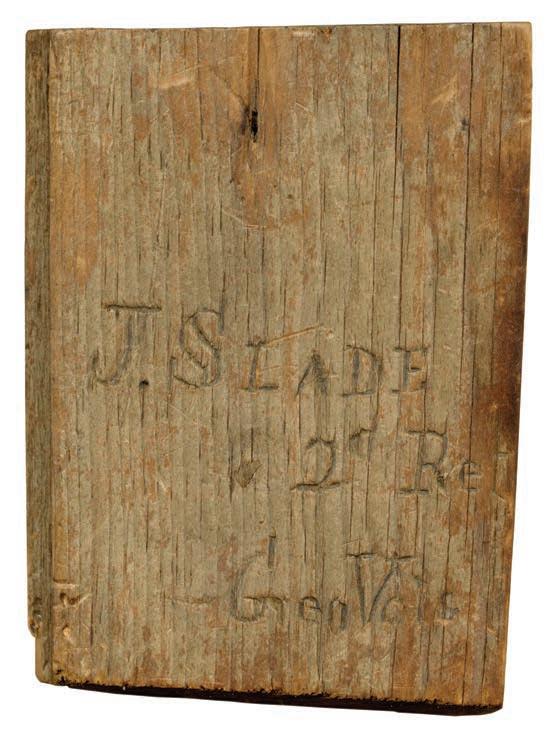 J. SLADE
2d Ret
Gren Vols